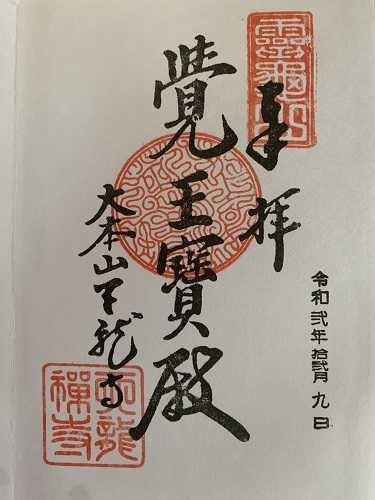 靈龜山
奉拝
令和弐年拾弐月九日
覺王寶殿
大本山天龍寺
天龍
禪寺